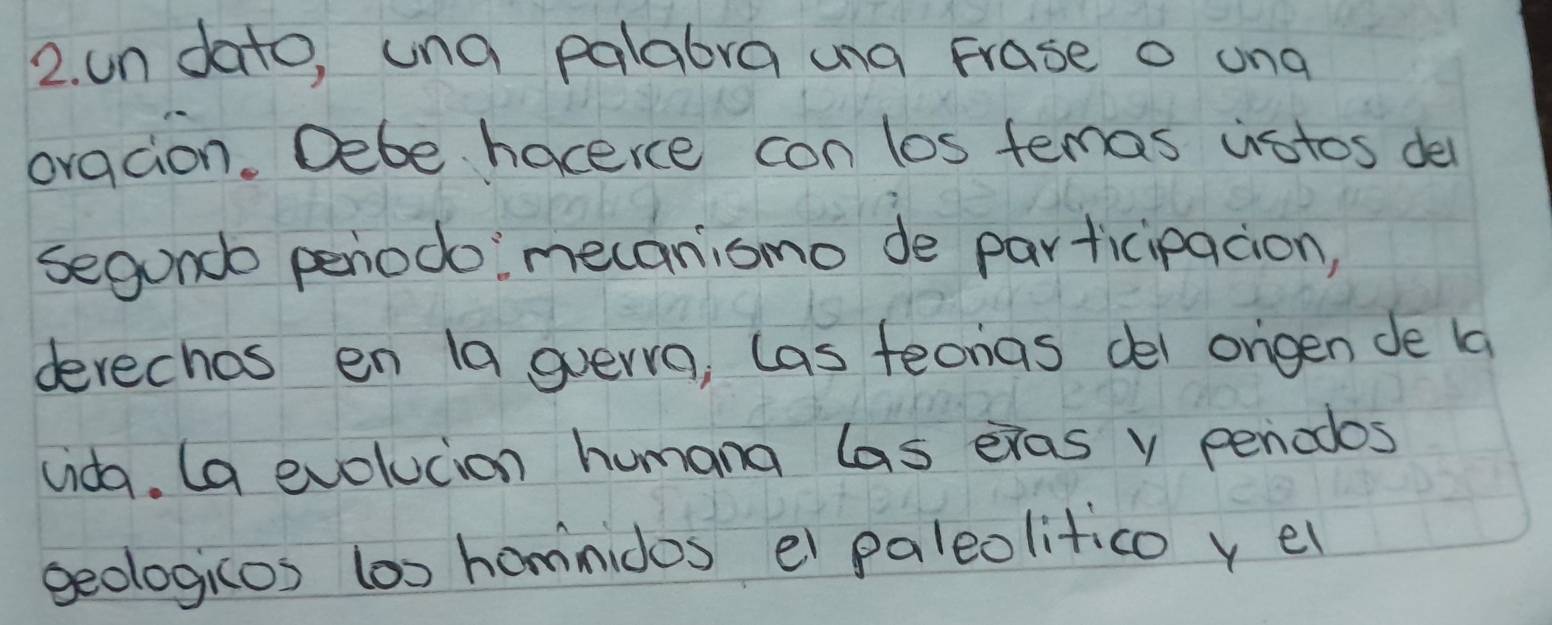 2. un dato, una palabra una Frase o una
oración. Debe hacerce con los temas vistos del
segundo periodo: mecanismo de participacion,
derechos en la guerra, Las teorias del origen de la
vida. La evolucion humana Las eras y periodos
geologicos los hominidos el paleolitico y el